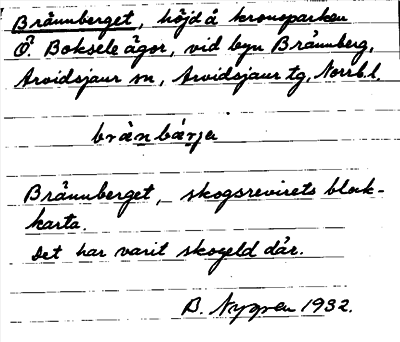 Brännberget, höjd å kronoparken
Ö. Boksele ägor, vid byn Brännberg,
Arvidsjaur sn, Arvidsjaur tg, Norrb.l.
brän bärja
Brännberget, skogsrevirets blok-
karta.
Det har varit skogeld där.
B. Nygren 1932.